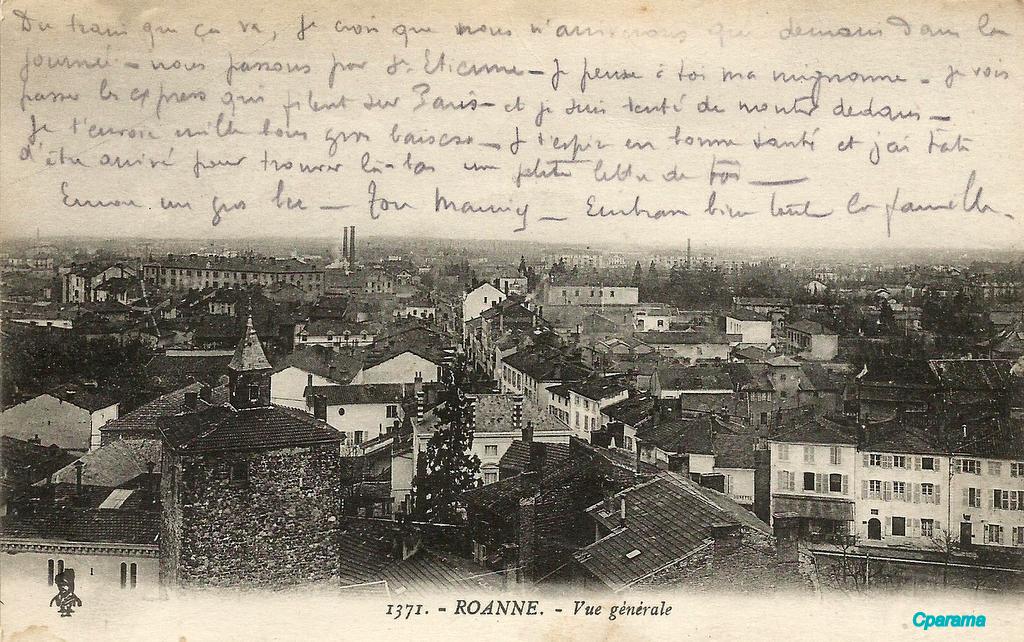 Du train que ça va, je crois que nous n'arriverons que demain dans la
journée - nous passons par St. Etienne - Je pense à toi ma mignonne - je vois
passer les express qui filent sur Paris - et je suis tenté de monter dedans -
Je t'envoie mille bons gros baisers - Je t'espère en bonne santé et j'ai hâte
d'être arrivé pour trouver là-bas une petite lettre de toi -
Encore un gros bec - Ton - Embrasse bien toute la famille -
1371. - ROANNE. - Vue générale
Cparama